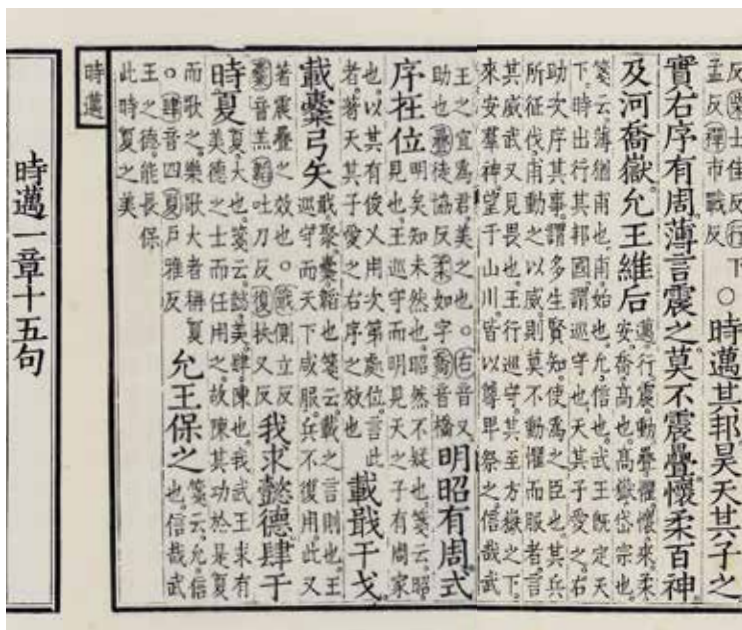 反柴士佳反行下
孟反禪市戰反
○時邁其邦昊天其子之
實右序有周薄言震之莫不震疊懷柔百神
及河喬嶽允王維后
邁行震動疊懼懷來柔
安喬高也高嶽岱宗也
箋云薄猶甫也甫始也允信也武王既定天
下時出行其邦國謂巡守也天其子愛之右
助次序其事謂多生賢知使爲之臣也其兵
所征伐甫動之以威則莫不動懼而服者言
其威武又見畏也王行巡守其至方嶽之下
來安羣神望于山川皆以尊卑祭之信哉武
王之宜爲君美之也○右音又
助也疊徒協反柔如字喬音橋
明昭有周式
序在位
明矣知未然也昭然不疑也箋云昭
見也王巡守而明見天之子有周家
也以其有俊乂用次第處位言此
者著天其子愛之右序之效也
載戢干戈
載櫜弓矢
戢聚櫜韜也箋云載之言則也王
巡守而天下咸服兵不復用此又
著震疊之效也○戢側立反
櫜音羔韜吐刀反復扶又反
我求懿德肆于
時夏
夏大也箋云懿美肆陳也我武王求有
美德之士而任用之故陳其功於是夏
而歌之樂歌大者稱夏
○肆音四夏戶雅反
允王保之
箋云允信
也信哉武
王之德能長保
此時夏之美
時邁
時邁一章十五句